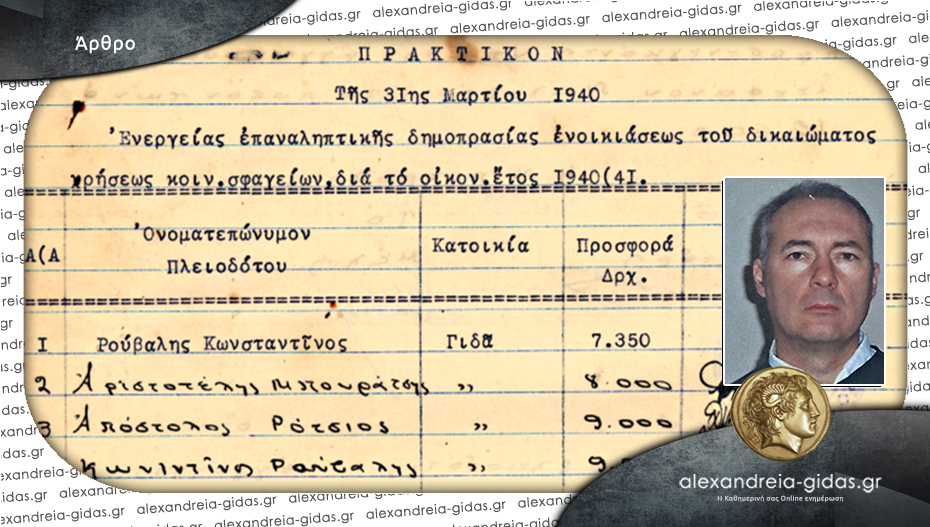 Άρθρο
ΠΡΑΚΤΙΚΟΝ
Τῆς 3Ιης Μαρτίου Ι940
Ἐνεργείας ἐπαναληπτικῆς δημοπρασίας ἐνοικιάσεως τοῦ δικαιώματος
χρήσεως κοιν.σφαγείων,διά τό οἰκον.ἔτος Ι940(4Ι.
Α(Α Ὀνοματεπώνυμον Πλειοδότου Κατοικία Προσφορά Δρχ.
Ι Ρούβαλης Κωνσταντῖνος Γιδᾶ 7.350
2 Ἀριστοτέλης Μπουράτσης ,, 8.000
3 Ἀπόστολος Ρότσιος ,, 9.000
Κωνιντῖνος Ρούβαλης ,,
alexandreia-gidas.gr
Η Καθημερινή σας Online ενημέρωση